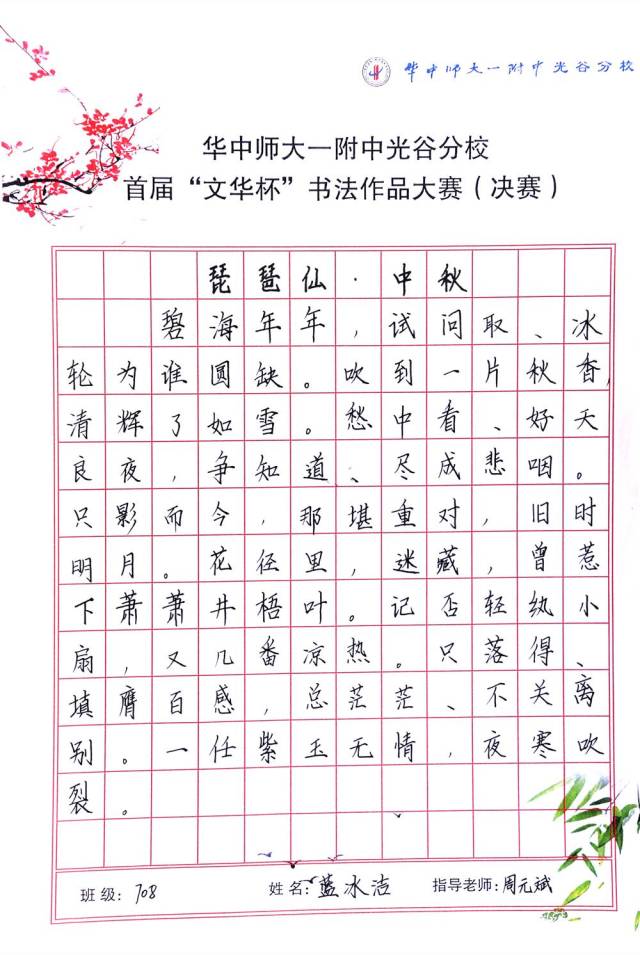 华中师大一附中光谷分校
华中师大一附中光谷分校
首届“文华杯”书法作品大赛(决赛)
琵琶仙·中秋
碧海年年,试问取、冰
轮为谁圆缺。吹到一片秋香,
清辉了如雪。愁中看、好天
良夜,争知道、尽成悲咽。
只影而今,那堪重对,旧时
明月。花径里,迷藏,曾惹
下萧萧井梧叶。记否轻纨小
扇,又几番凉热。只落得、
填膺百感,总茫茫、不关离
别。一任紫玉无情,夜寒吹
裂。
班级:708 姓名:蓝冰洁 指导老师:周元斌